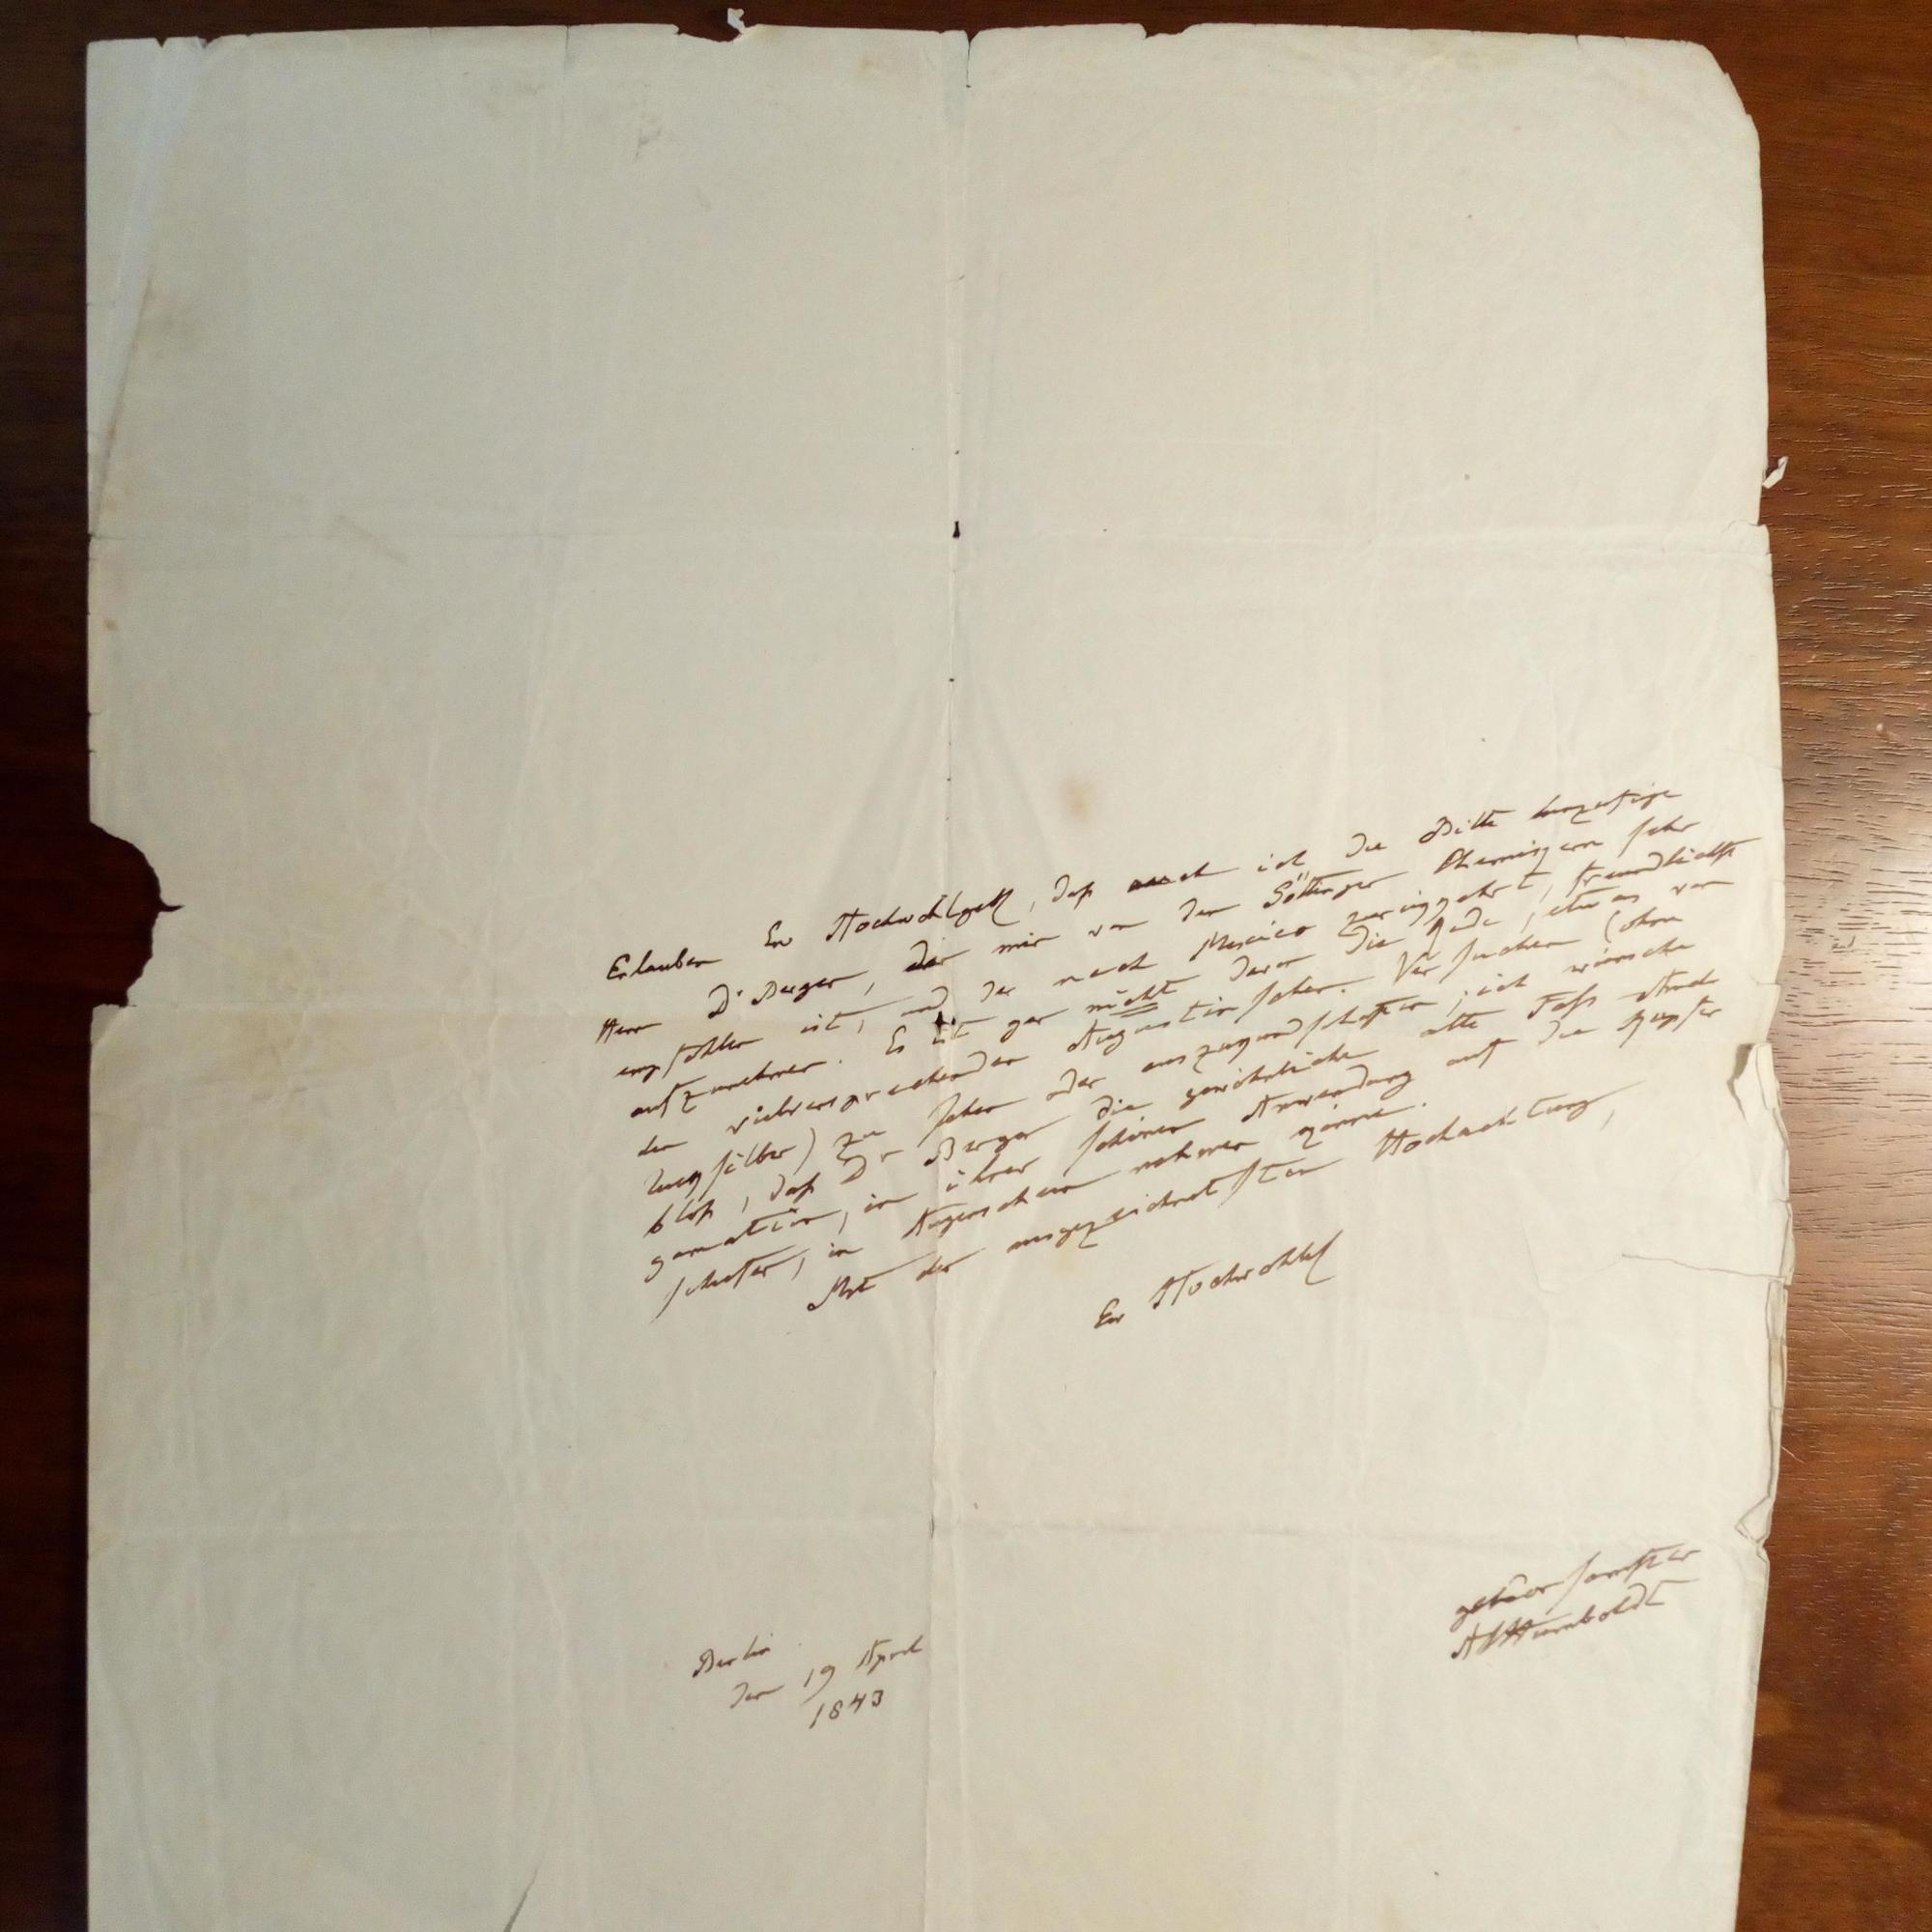 Erlauben Ew Hochwohlgeb, daß auch ich die Bitte
Herr Dr Berger, der mir von den Göttinger Chemikern sehr
empfohlen ist, und der nach Mexico zurückgeht, freundlichst
aufzunehmen. Es ist gar nicht davon die Rede, etwas von
den vielversprechenden Augustinschen Versuchen (ohne
Quecksilber) zu sehen oder auszukundschaften; ich wünsche
bloß, daß Dr Berger die gewöhnliche alte Faß Amal-
gamation, in ihrer schönen Anwendung auf die Kupfer
in Augenschein nehmen könne.
Mit der ausgezeichnetsten Hochachtung,
Ew Hochwohlgeb
gehorsamster
AvHumboldt
Berlin
den 19 April
1843